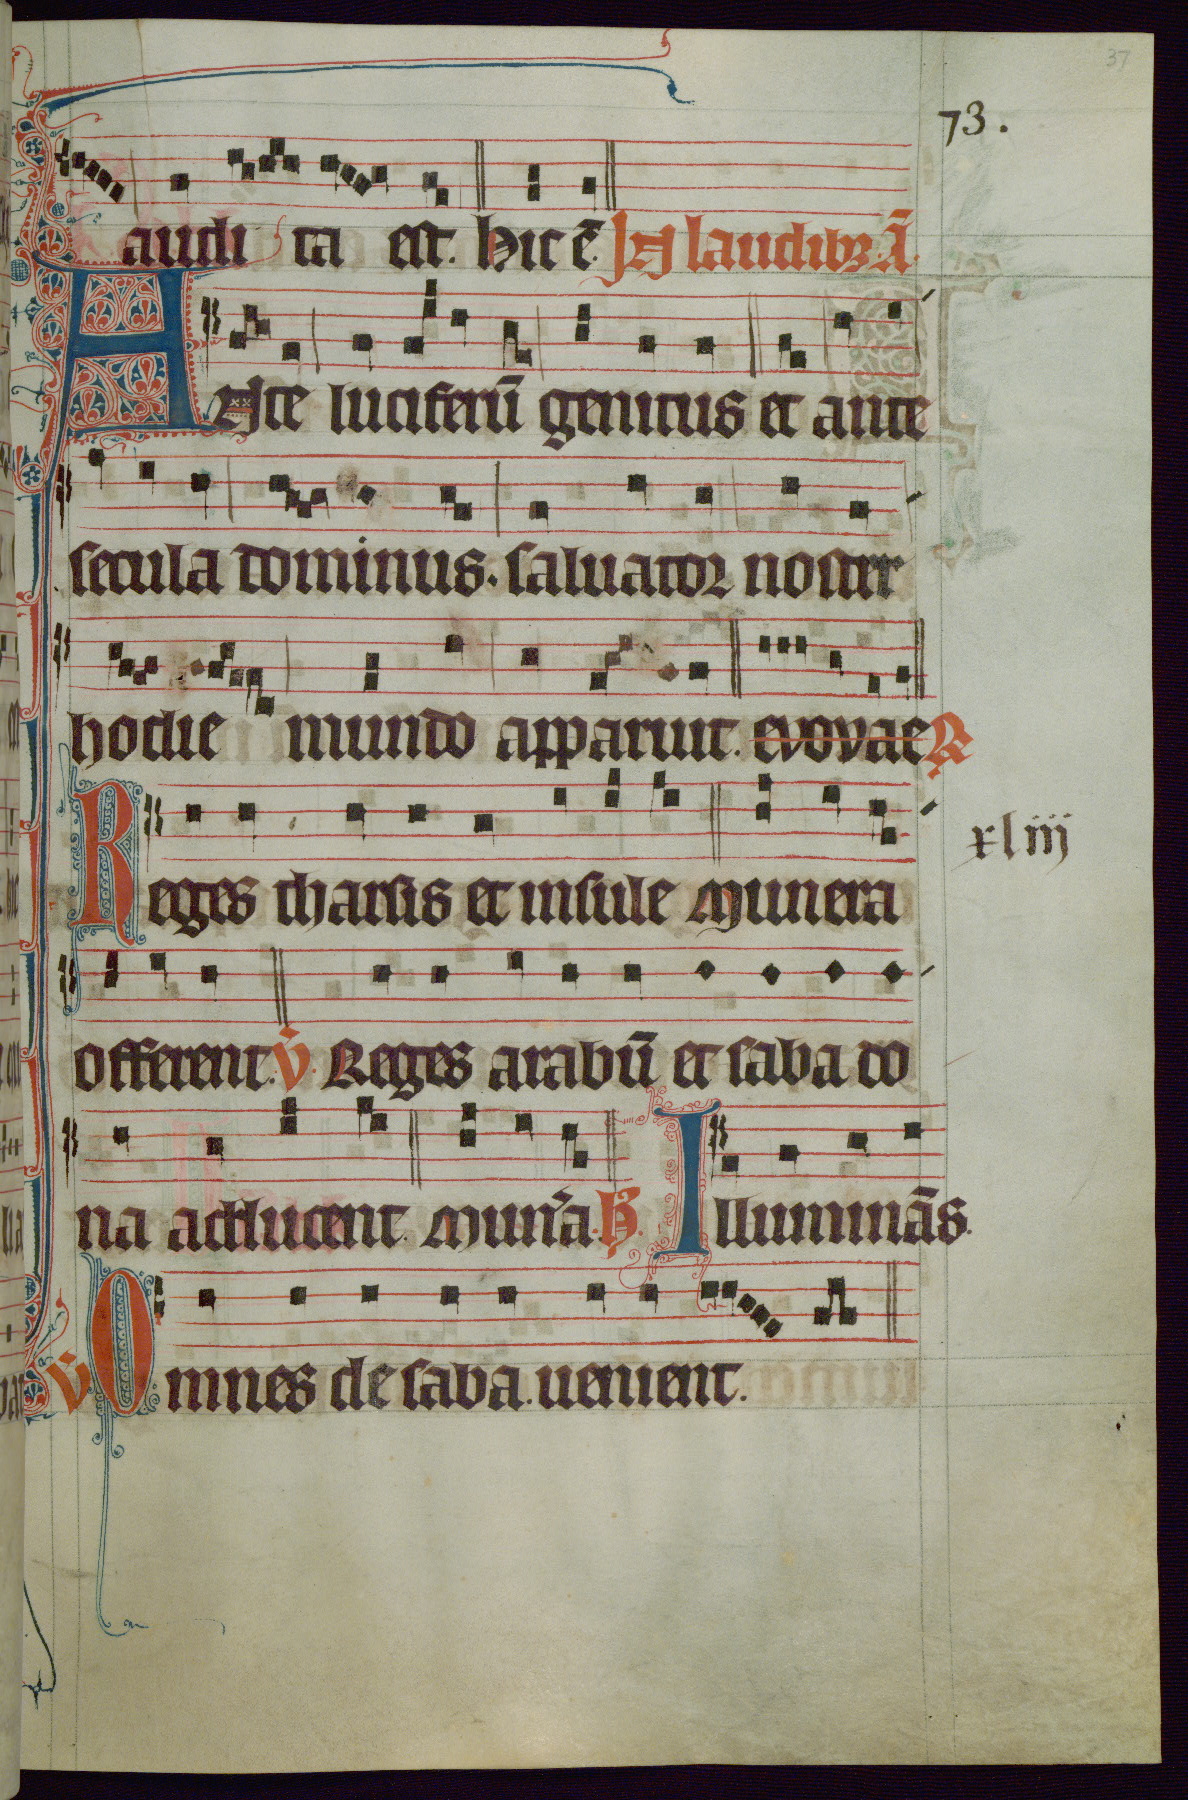 37
73.
audi ta est. hic ē. In laudibꝫ. ā.
Ante luciferū genitus et ante
secula dominus. saluator noster
hodie mundo apparuit. evovae R
Reges tharsis et insule munera
xliij
offerent. v̄. Reges arabū et saba do
na adducent. mun̄a. R̄. Illuminās.
v̄ Omnes de saba. uenient.